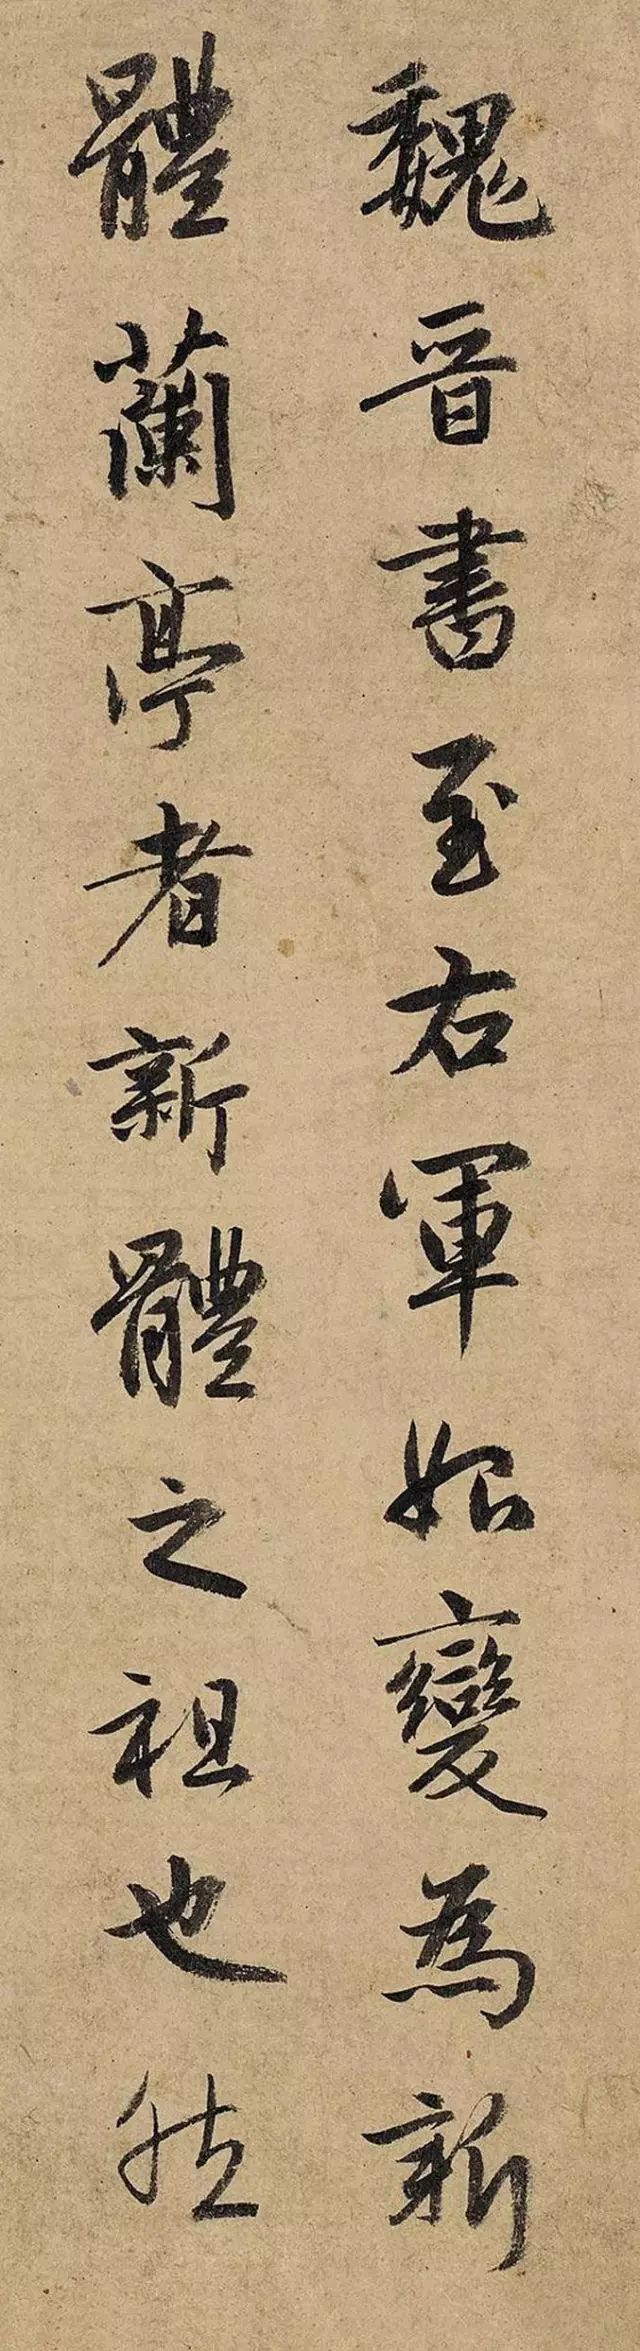 魏晉書至右軍始變為新
體蘭亭者新體之祖也然